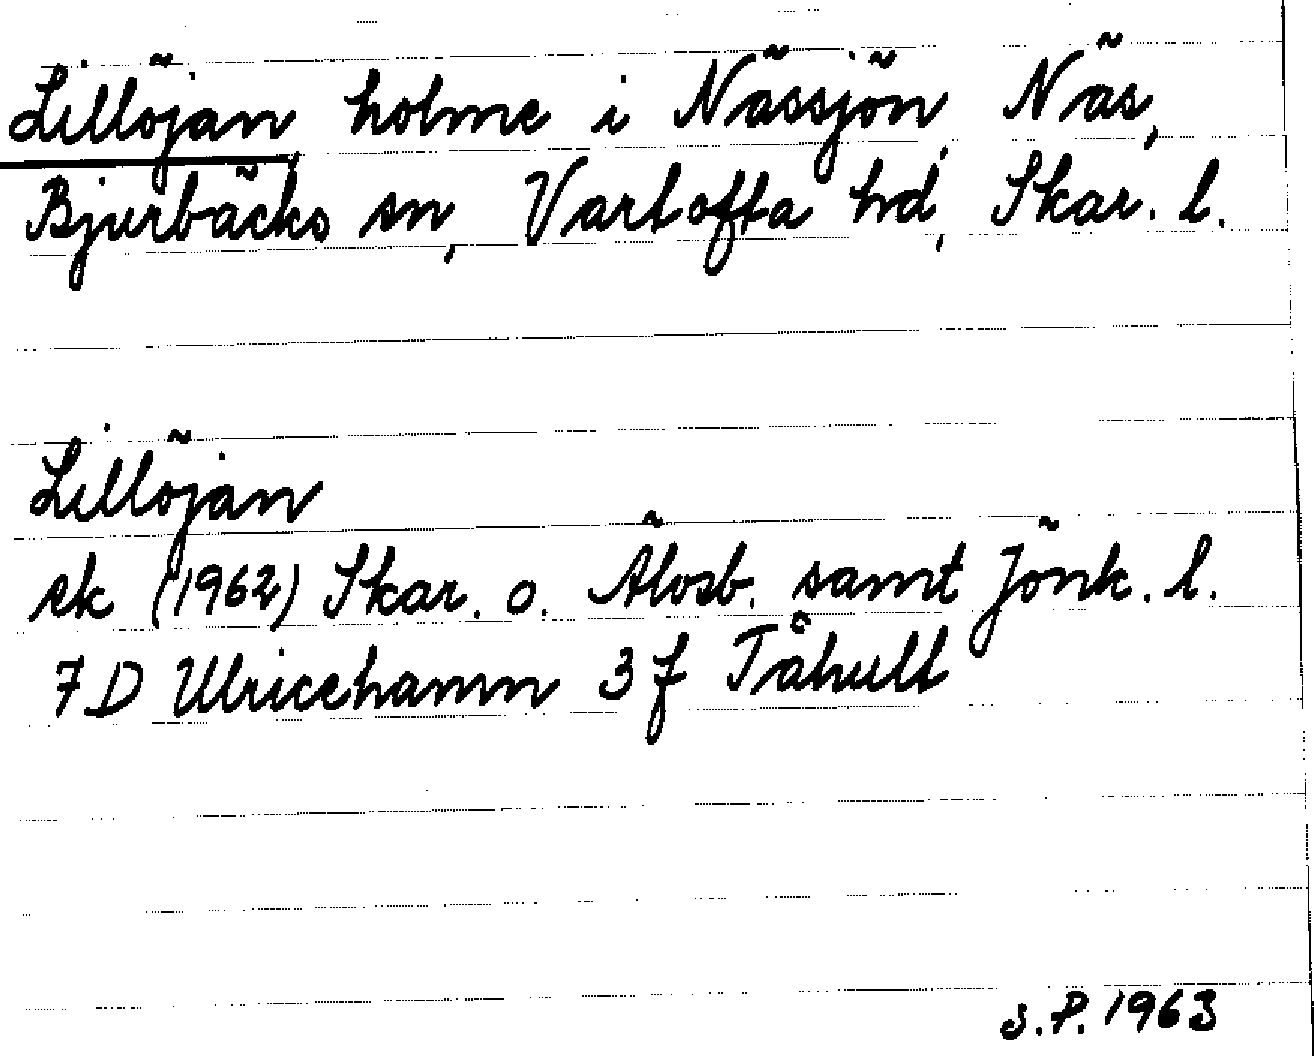 Lillöjan, holme i Nässjön, Näs,
Bjurbäcks sn, Vartofta hd, Skar. l.
Lillöjan
ek (1962) Skar. o. Älvsb. samt Jönk. l.
7 D Ulricehamn 3 f Tåhult
S.P. 1963